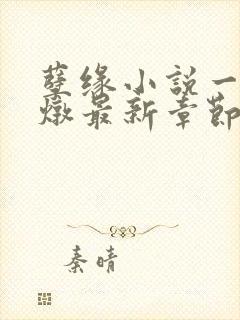 孽缘小说一
燉最新章節
秦晴